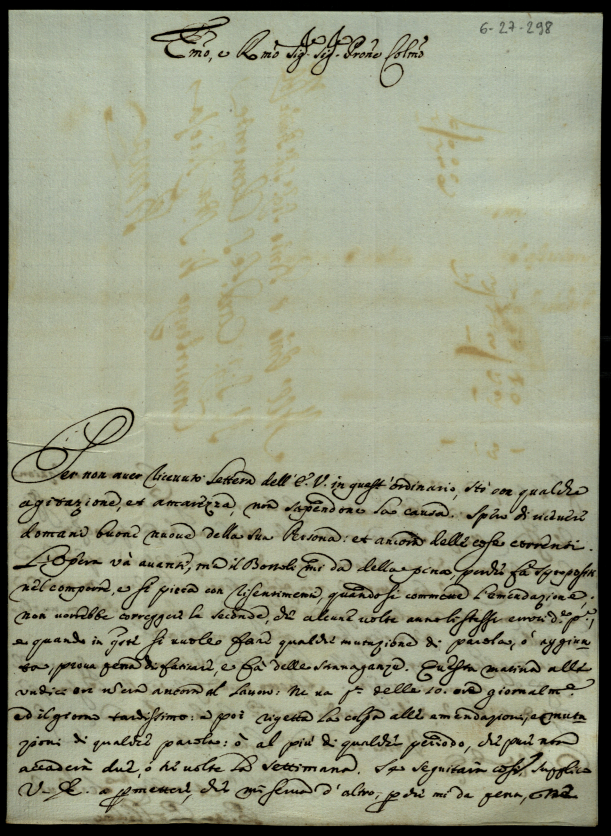 6-27-298
Em̃o, e Rm̃o Sig.r Sig.r Prone Colm̃o
Per non aver ricevuto lettera dell'E. V. in quest'ordinario, sto con qualche
agitazione, et amarezza, non sapendone la causa. Spero di ricevere
domani buone nuove della sua Persona: et ancora delle cose correnti.
L'Opera và avanti, ma il Bortoli mi da della pena, perche fà spropositi
nel comporre, e si picca con risentimento, quando si commette l'emendazione:
non vorrebbe correggere la seconda, che alcune volte hà gl'istessi errori
e quando in si vuole fare qualche mutazione di parola, ò aggiun-
ta, prova pena di farsare, e fà delle stravaganze. Questa matina alle
undici ore v'era ancora al lavoro: Ne va delle 10. ore giornalm.e
ed il giorno tardissimo: e poi rigetta la colpa alle emendazioni, e muta-
zioni di qualche parola: ò al più di qualche periodo, che pur non
accaderà due, ò tre volte la settimana. Se seguitarà così, supplico
V. E. a permettere, che mi serva d'altro, perche mi da pena,